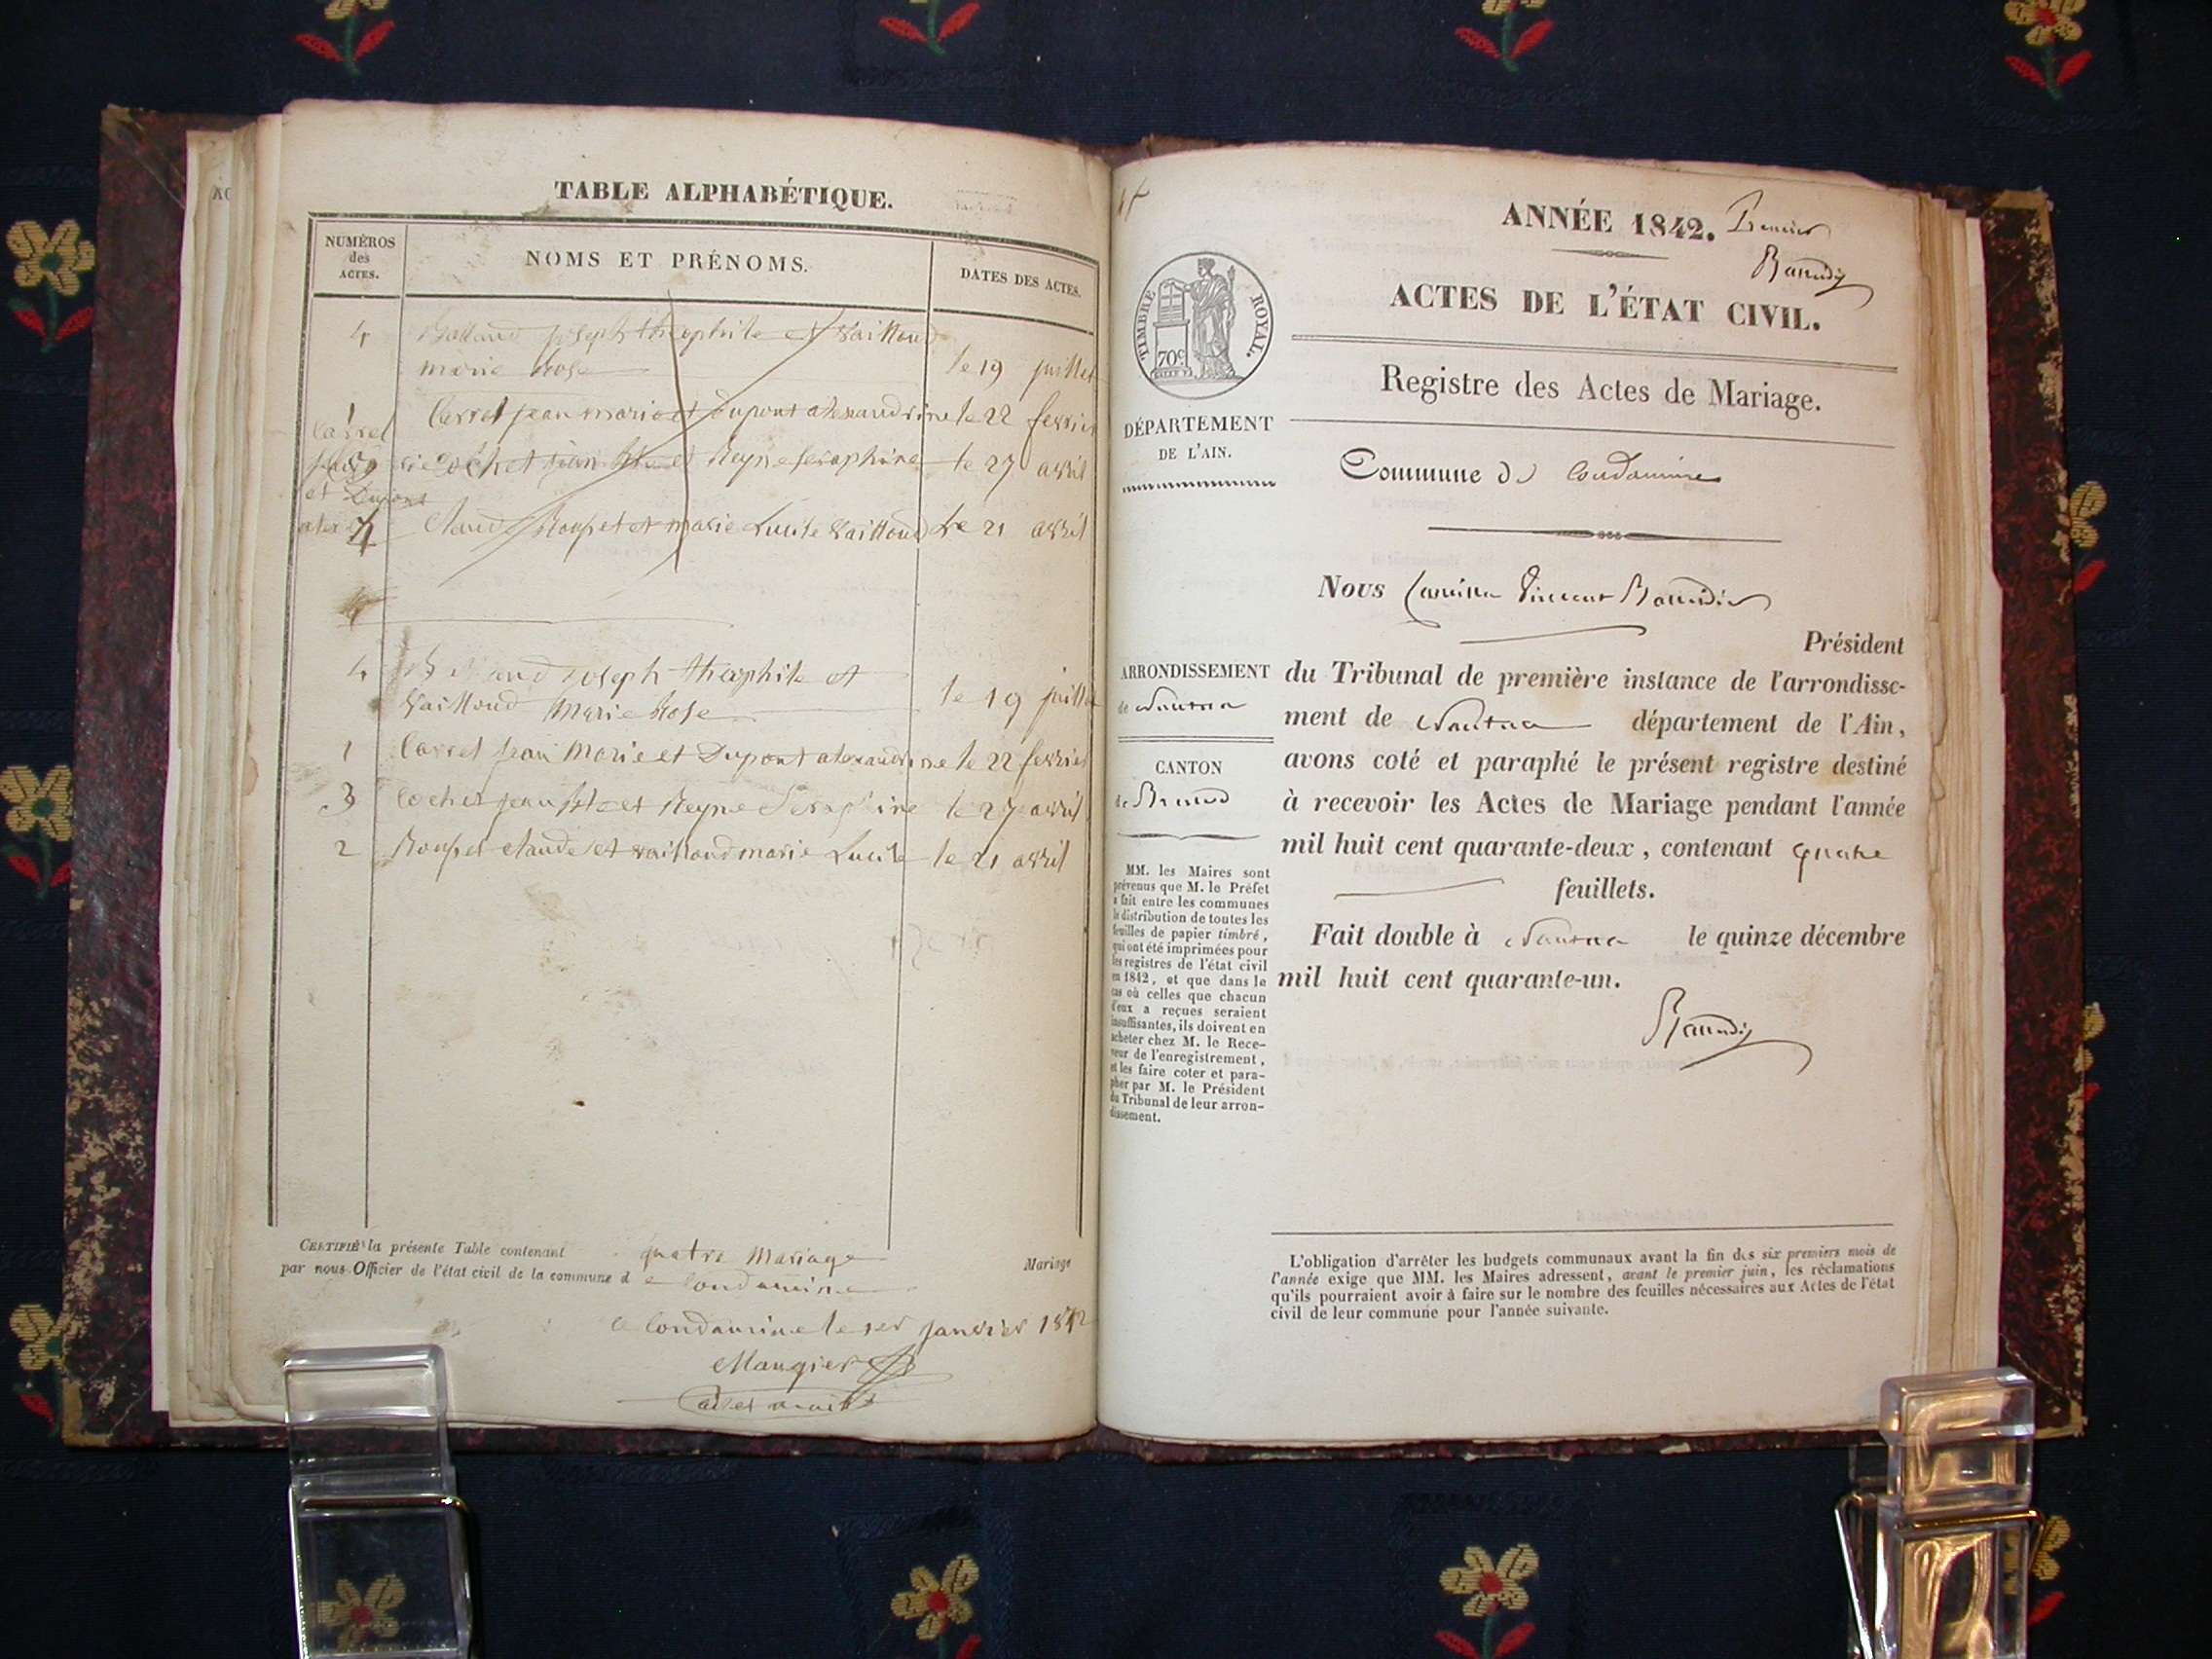 TABLE ALPHABÉTIQUE.
NUMÉROS des ACTES.
NOMS ET PRÉNOMS.
DATES DES ACTES.
4 joseph théophile et Vailloud
marie Rose le 19 juillet
1 Carrel jean marie et Dupont alexandrine le 22 fevrier
Carrel
Cochet jean Bte et Reyne Seraphine le 27 avril
et Dupont
Claude Roupet et marie Lucile Vailloud Le 21 avril
4 joseph théophile et
Vailloud Marie Rose le 19 juillet
1 Carrel jean Marie et Dupont alexandrine le 22 fevrier
3 Cochet jean Bte et Reyne Seraphine le 27 avril
2 Roupet claude et Vailloud marie Lucile le 21 avril
CERTIFIÉ la présente Table contenant quatre Mariage Mariage
par nous Officier de l'état civil de la commune d e Condamine
a Condamine le 1er janvier 1842
Maugier
AC
ANNÉE 1842. Premier
Baudin
ACTES DE L'ÉTAT CIVIL.
Registre des Actes de Mariage.
TIMBRE ROYAL.
70c
DÉPARTEMENT
DE L'AIN.
Commune de Condamine
Nous Camille Vincent
Président
ARRONDISSEMENT
de Nantua
CANTON
de Brenod
du Tribunal de première instance de l'arrondisse-
ment de Nantua département de l'Ain,
avons coté et paraphé le présent registre destiné
à recevoir les Actes de Mariage pendant l'année
mil huit cent quarante-deux, contenant quatre
feuillets.
Fait double à Nantua le quinze décembre
mil huit cent quarante-un.
MM. les Maires sont
prévenus que M. le Préfet
a fait entre les communes
la distribution de toutes les
feuilles de papier timbré,
qui ont été imprimées pour
les registres de l'état civil
en 1842, et que dans le
cas où celles que chacun
d'eux a reçues seraient
insuffisantes, ils doivent en
acheter chez M. le Rece-
veur de l'enregistrement,
et les faire coter et para-
pher par M. le Président
du Tribunal de leur arron-
dissement.
L'obligation d'arrêter les budgets communaux avant la fin des six premiers mois de
l'année exige que MM. les Maires adressent, avant le premier juin, les réclamations
qu'ils pourraient avoir à faire sur le nombre des feuilles nécessaires aux Actes de l'état
civil de leur commune pour l'année suivante.